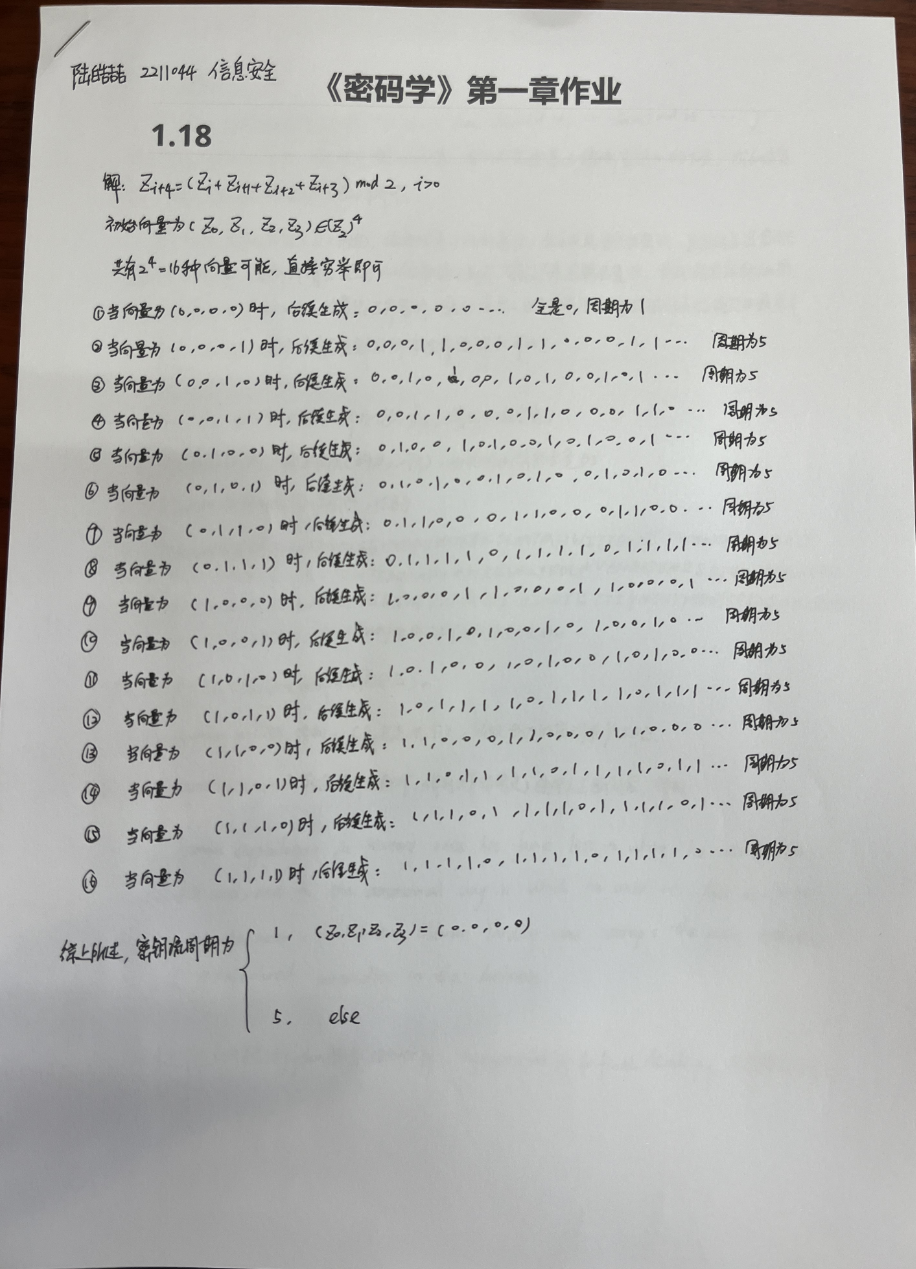 陆皓喆 2211044 信息安全
《密码学》第一章作业
1.18
解: Zi+4=(Zi+Zi+1+Zi+2+Zi+3) mod 2, i≥0
初始向量为(Z0, Z1, Z2, Z3)∈(Z2)^4
共有2^4=16种向量可能, 直接穷举即可
①当向量为(0,0,0,0)时, 后续生成: 0,0,0,0,0.... 全是0, 周期为1
②当向量为(0,0,0,1)时, 后续生成: 0,0,0,1,1,0,0,0,1,1,0,0,0,1,1... 周期为5
③当向量为(0,0,1,0)时, 后续生成: 0,0,1,0,1,0,0,1,0,1,0,0,1,0,1... 周期为5
④当向量为(0,0,1,1)时, 后续生成: 0,0,1,1,0,0,0,1,1,0,0,0,1,1,0... 周期为5
⑤当向量为(0,1,0,0)时, 后续生成: 0,1,0,0,1,0,1,0,0,1,0,1,0,0,1... 周期为5
⑥当向量为(0,1,0,1)时, 后续生成: 0,1,0,1,0,0,1,0,1,0,0,1,0,1,0... 周期为5
⑦当向量为(0,1,1,0)时, 后续生成: 0,1,1,0,0,0,1,1,0,0,0,1,1,0,0... 周期为5
⑧当向量为(0,1,1,1)时, 后续生成: 0,1,1,1,1,0,1,1,1,1,0,1,1,1,1... 周期为5
⑨当向量为(1,0,0,0)时, 后续生成: 1,0,0,0,1,1,0,0,0,1,1,0,0,0,1... 周期为5
⑩当向量为(1,0,0,1)时, 后续生成: 1,0,0,1,0,1,0,0,1,0,1,0,0,1,0... 周期为5
⑪当向量为(1,0,1,0)时, 后续生成: 1,0,1,0,0,1,0,1,0,0,1,0,1,0,0... 周期为5
⑫当向量为(1,0,1,1)时, 后续生成: 1,0,1,1,1,1,0,1,1,1,1,0,1,1,1... 周期为5
⑬当向量为(1,1,0,0)时, 后续生成: 1,1,0,0,0,1,1,0,0,0,1,1,0,0,0... 周期为5
⑭当向量为(1,1,0,1)时, 后续生成: 1,1,0,1,1,1,1,0,1,1,1,1,0,1,1... 周期为5
⑮当向量为(1,1,1,0)时, 后续生成: 1,1,1,0,1,1,1,1,0,1,1,1,1,0,1... 周期为5
⑯当向量为(1,1,1,1)时, 后续生成: 1,1,1,1,0,1,1,1,1,0,1,1,1,1,0... 周期为5
综上所述, 密钥流周期为 { 1, (Z0,Z1,Z2,Z3)=(0,0,0,0)
5, else